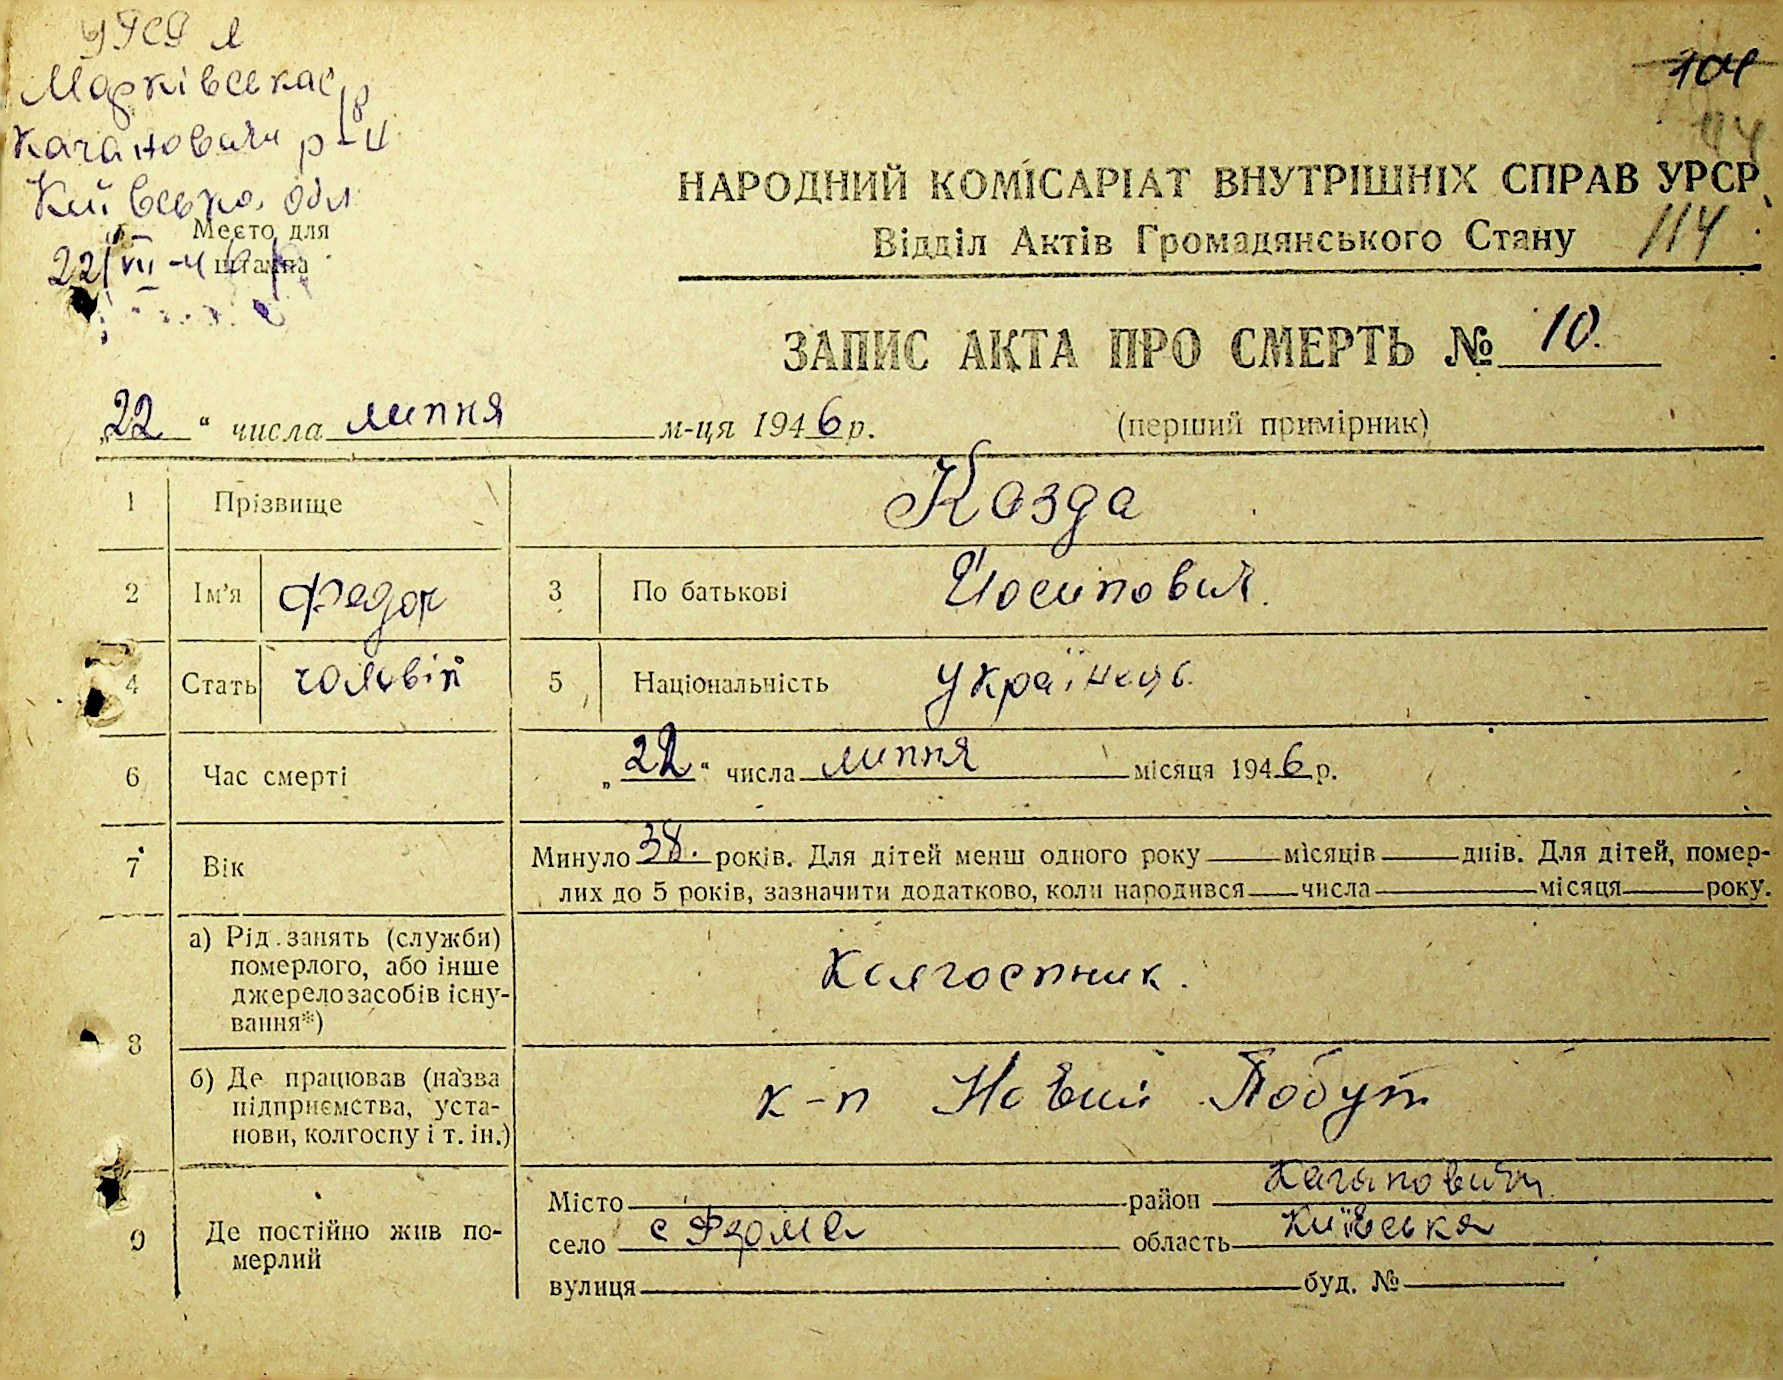 УРСР
Марківська с/р
Каганович р-н
Київська обл
Место для
штампа
22/VII-46р
104
114
НАРОДНИЙ КОМІСАРІАТ ВНУТРІШНІХ СПРАВ УРСР
Відділ Актів Громадянського Стану 114
ЗАПИС АКТА ПРО СМЕРТЬ № 10.
„22“ числа липня м-ця 1946 р. (перший примірник)
1 Прізвище Козда
2 Ім'я Федор 3 По батькові Йосипович
4 Стать чоловік 5 Національність українець
6 Час смерті „22“ числа липня місяця 1946 р.
7 Вік Минуло 38. років. Для дітей менш одного року — місяців — днів. Для дітей, помер-
лих до 5 років, зазначити додатково, коли народився — числа — місяця — року.
8 а) Рід занять (служби)
померлого, або інше
джерело засобів існу-
вання*) Колгоспник.
б) Де працював (назва
підприємства, уста-
нови, колгоспу і т. ін.) к-п Новий Побут
9 Де постійно жив по-
мерлий
Місто — район Каганович
село область Київська
вулиця — буд. №